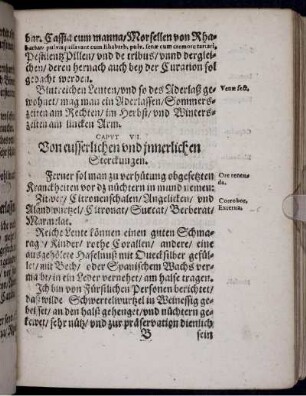 bar. Cassia cum manna/ Morsellen von Rha-
barbaro pulvis
Pestilentz Pillen/ vnd de tribus/ vnnd dergleichen/
deren hernach auch bey der Curation sol
gedacht werden.
Blutreichen Leuten/ vnd so des Aderlaß ge-
wohnet/ mag man ein Aderlassen/ Sommers-
zeiten am Rechten/ im Herbst/ vnd Winters-
zeiten am lincken Arm.
Venæ sect.
CAPVT VII.
Von eusserlichen vnd jnnerlichen
Sterckungen.
Ferner sol man zu verhütung obgesetzten
Kranckheiten vor dz nüchtern in mund nemen:
Zitwer/ Citronenschalen/ Angelicken/ vnd
Alandwurtzel/ Citronat/ Succat/ Berberat/
Marmelat.
Ore tenen-
da.
Reiche Leute können einen guten Schma-
rag/ Kinder/ rothe Corallen/ andere/ eine
ausgehölete Haselnuß mit Quecksilber gefül-
let/ mit Bech/ oder Spanischem Wachs ver-
macht/ in ein Leder vernehet/ am halse tragen.
Externa.
Ich bin von Fürstlichen Personen berichtet/
das wilde Schwertelwurtzel in Weinessig ge-
beisset/ an den halß gehenget/ vnd nüchtern ge-
kewet/ sehr nütz/ vnd zur præservation dienlich
B
sein